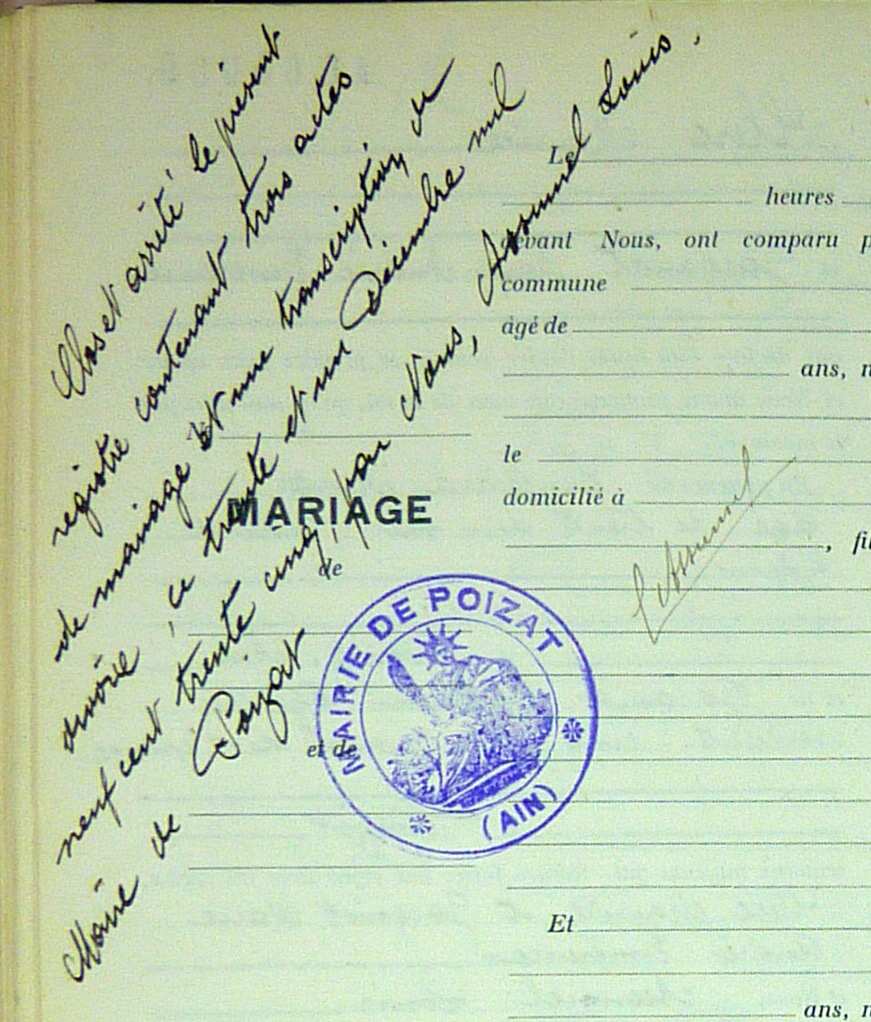 Clos et arrêté le présent
registre contenant trois actes
de mariage et une transcription de
divorce, ce trente et un Décembre mil
neuf cent trente cinq, par Nous, Assumel Louis,
Maire de Poizat
Le
heures
devant Nous, ont comparu p
commune
âgé de
ans, n
le
domicilié à
, fil
MARIAGE
de
et de
L Assumel
MAIRIE DE POIZAT
(AIN)
Et
ans, n